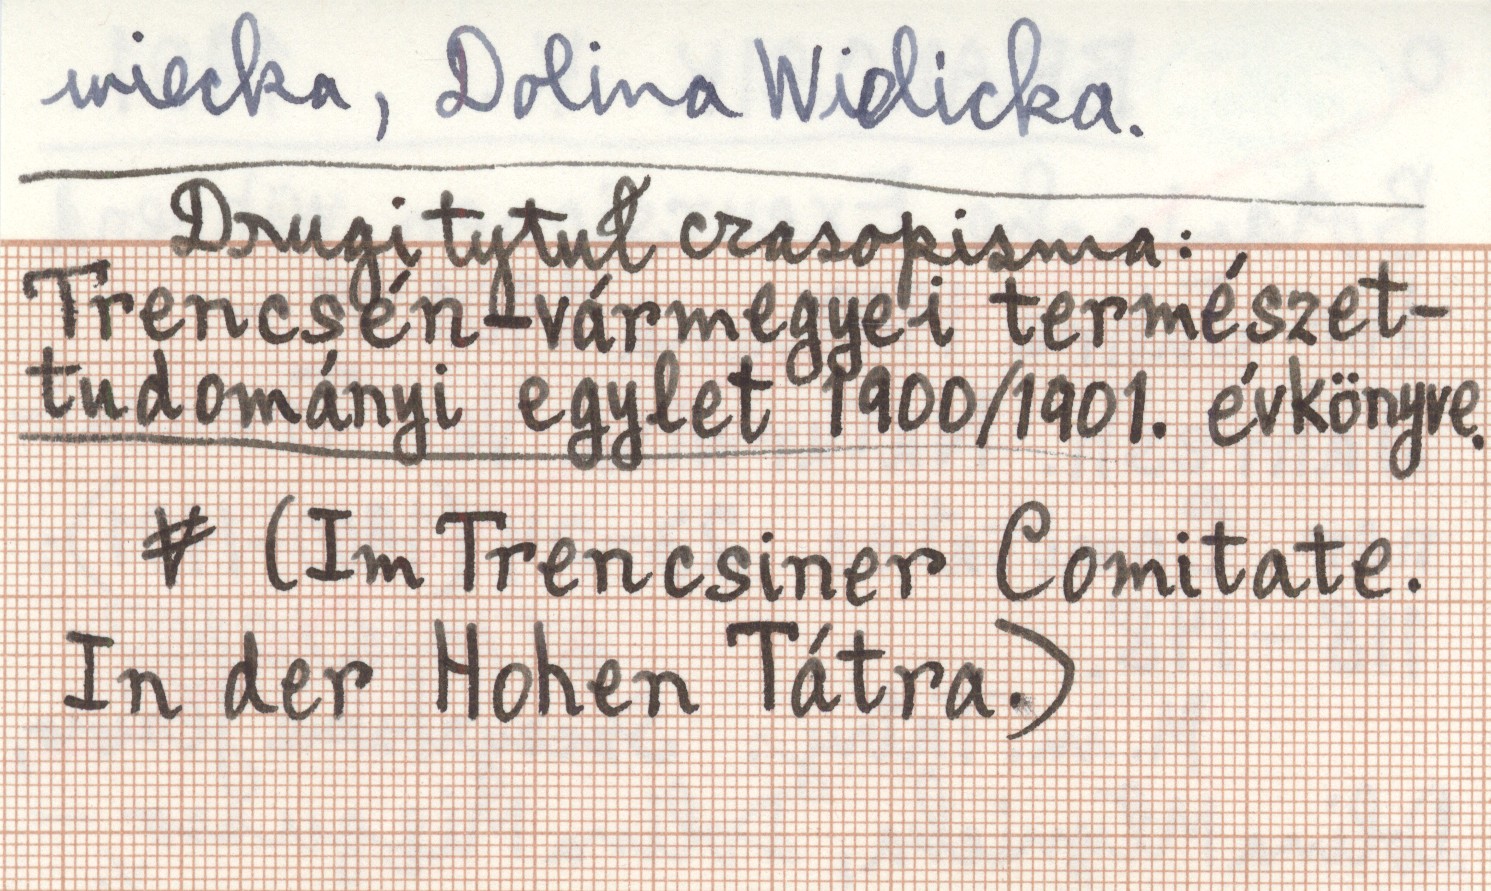 wiecka, Dolina Widlicka.
Drugi tytuł czasopisma:
Trencsén-vármegyei természet-
tudományi egylet 1900/1901. évkönyve.
# (Im Trencsiner Comitate.
In der Hohen Tátra.)